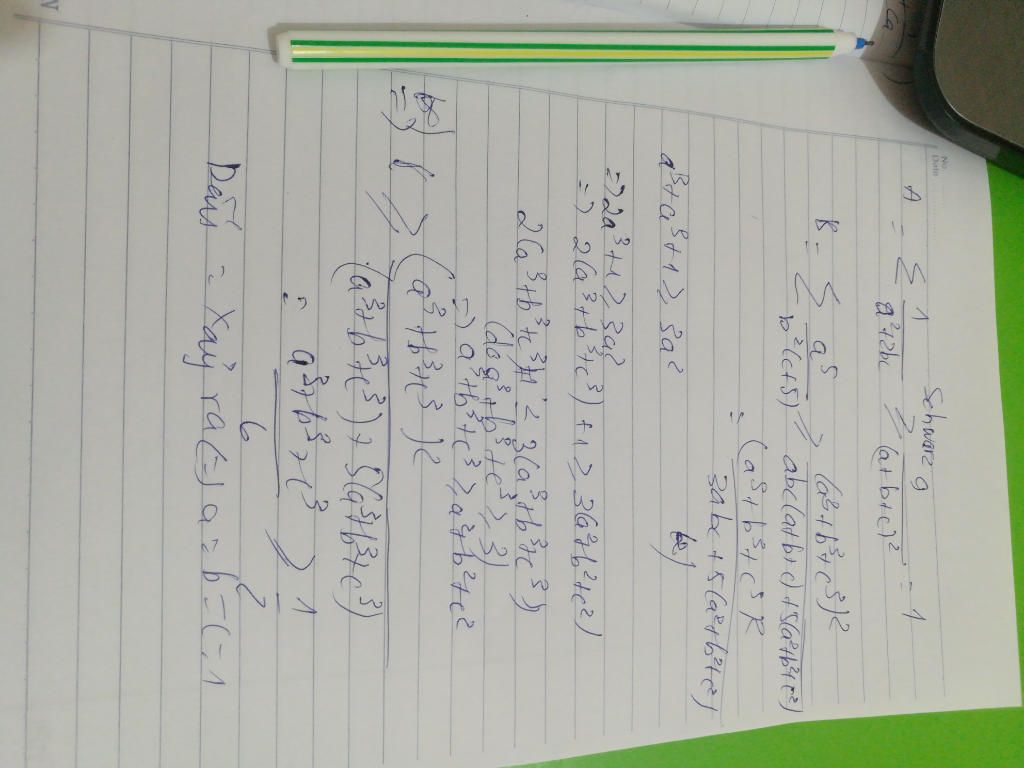 No.
Date
Schwarz
A = ∑ 1/(a²+2bc) ≥ 9/(a+b+c)² = 1
B = ∑ a⁵/(b²(c+5)) ≥ (a³+b³+c³)²/(abc(a+b+c)+5(a²+b²+c²))
= (a³+b³+c³)²/(3abc+5(a²+b²+c²))
a³+a³+1 ≥ 3a²
=> 2a³+1 ≥ 3a²
=> 2(a³+b³+c³)+1 ≥ 3(a²+b²+c²)
2(a³+b³+c³)+1 ≤ 3(a³+b³+c³)
(do a³+b³+c³ ≥ 3)
=> a³+b³+c³ ≥ a²+b²+c²
=> B ≥ (a³+b³+c³)²/((a³+b³+c³)+5(a³+b³+c³))
= (a³+b³+c³)/6 ≥ 1/2
Dấu = xảy ra (=) a=b=c=1